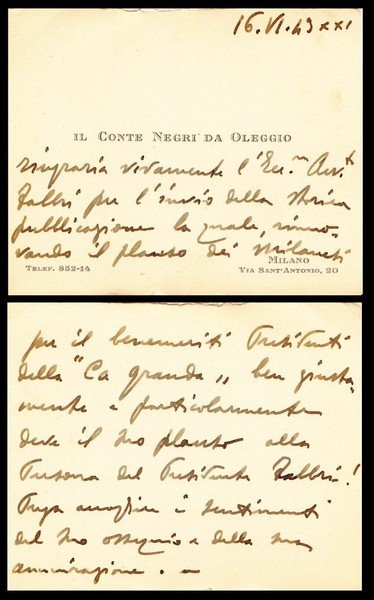 16.VI.43 XXI
IL CONTE NEGRI DA OLEGGIO
ringrazia vivamente l'Ecc.m Avv.to
Fabbri per l'invio della storica
pubblicazione la quale, rinno-
vando il plauso dei Milanesi
MILANO
TELEF. 852-14
VIA SANT'ANTONIO, 20
per il benemeriti Presidenti
della "Ca granda" ben giusta-
mente e particolarmente
deve il suo plauso alla
Persona del Presidente Fabbri!
Prega accogliere i sentimenti
del suo ossequio e della sua
ammirazione. —